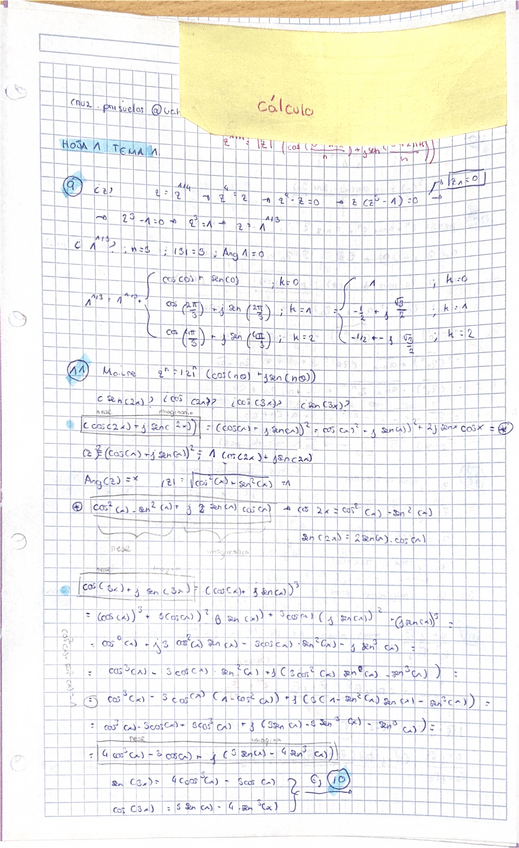 cálculo
HOJA 1 TEMA 1.
9 z = z^1/4 → z^4 = z → z^4 - z = 0 → z (z^3 - 1) = 0 z_1 = 0
→ z^3 - 1 = 0 → z^3 = 1 → z = 1^1/3
¿ 1^1/3 ? ; n = 3 ; ; Ang 1 = 0
1^1/3 = cos(0) + sen(0) ; k=0 = 1 ; k=0
cos (2π/3) + j sen (2π/3) ; k=1 -1/2 + j √3/2 ; k=1
cos (4π/3) + j sen (4π/3) ; k=2 -1/2 - j √3/2 ; k=2
11 Moivre z^n = |z|^n (cos(nθ) + j sen(nθ))
¿ sen(2x)? ¿cos (2x)? ¿cos (3x)? ¿sen(3x)?
real imaginario
cos(2x) + j sen(2x) = (cos(x) + j sen(x))^2 = cos(x)^2 - j sen(x)^2 + 2j senx cosx = *
(z)^2 = (cos(x) + j sen(x))^2 = 1 (cos(2x) + j sen(2x)
Arg(z) = x |z| = √cos^2(x) + sen^2(x) = 1
* cos^2(x) - sen^2(x) + j 2 sen(x) cos(x) → cos 2x = cos^2(x) - sen^2(x)
real imaginario sen(2x) = 2sen(x) · cos(x)
cos(3x) + j sen(3x) = (cos(x) + j sen(x))^3
= (cos(x))^3 + 3(cos(x))^2 (j sen(x)) + 3cos(x) (j sen(x))^2 - (j sen(x))^3 =
= cos^3(x) + j3 cos^2(x) sen(x) - 3cos(x) · sen^2(x) - j sen^3(x) =
= cos^3(x) - 3 cos(x) · sen^2(x) + j (3cos^2(x) sen(x) - sen^3(x)) =
= cos^3(x) - 3 cos(x) (1 - cos^2(x)) + j (3(1 - sen^2(x) sen(x) - sen^3(x)) =
= cos^3(x) - 3cos(x) + 3cos^3(x) + j (3sen(x) - 3 sen^3(x) - sen^3(x)) =
real imaginario
= 4cos^3(x) - 3cos(x) + j (3 sen(x) - 4 sen^3(x))
sen(3x) = 4cos^3(x) - 3cos(x)
cos(3x) = 3 sen(x) - 4 · sen^3(x)
10